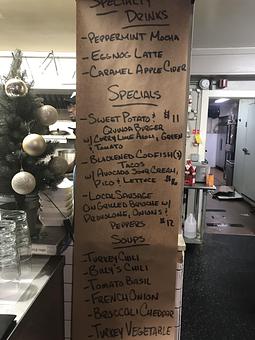 Specialty
Drinks
- Peppermint Mocha
- Eggnog Latte
- Caramel Apple Cider
Specials
- Sweet Potato & $11
Quinoa Burger
w/ Curry Lime Aioli, Green
& Tomato
- Blackened Codfish (3)
Tacos
w/ Avocado, Sour Cream,
Pico & Lettuce
- Local Sausage
on Grilled Brioche w/
Provolone, Onions &
Peppers $12
Soups
- Turkey Chili
- Billy's Chili
- Tomato Basil
- French Onion
- Broccoli Cheddar
- Turkey Vegetable